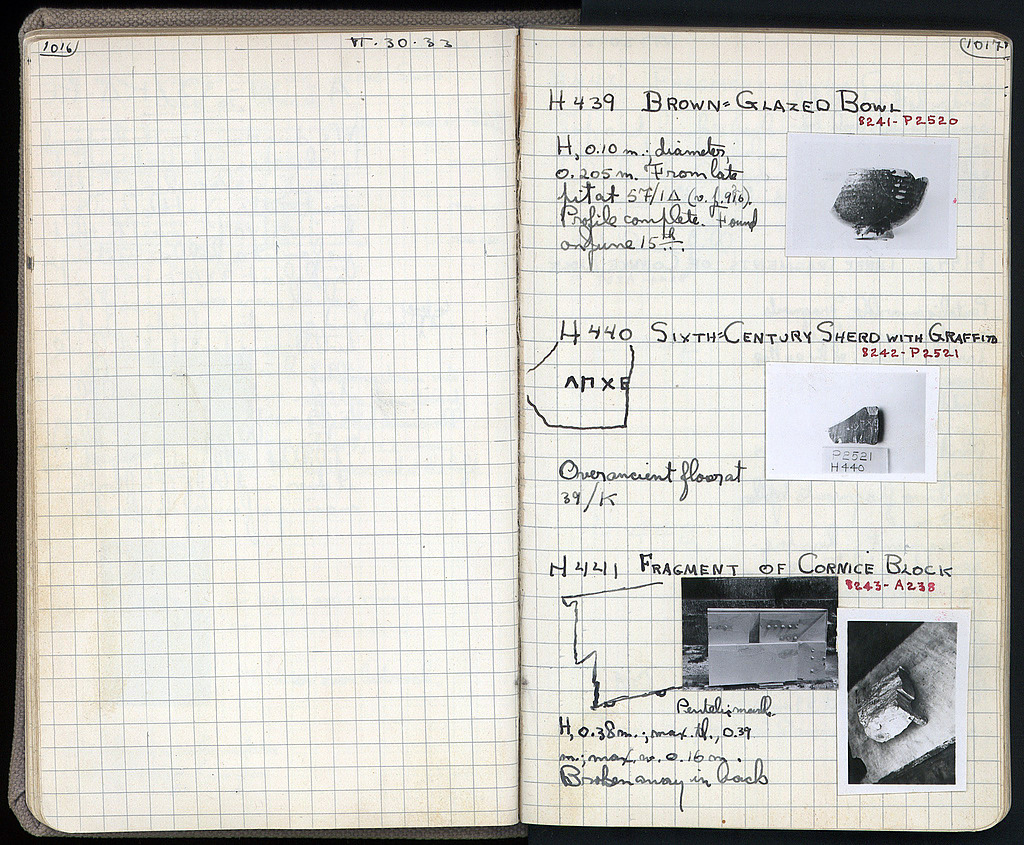 1016
VI.30.33
1017
H 439 BROWN=GLAZED BOWL
8241-P2520
H, 0.10 m.; diameter,
0.205 m. From late
pit at 57/ΙΔ (v. p. 916).
Profile complete. Found
on June 15th.
H 440 SIXTH=CENTURY SHERD WITH GRAFFITO
8242-P2521
ΛΠΧΕ
P2521
H440
Over ancient floor at
39/K
H 441 FRAGMENT OF CORNICE BLOCK
8243-A238
Pentelic marble
H, 0.38 m.; max. th., 0.39
m.; max. w. 0.16 m.
Broken away in back